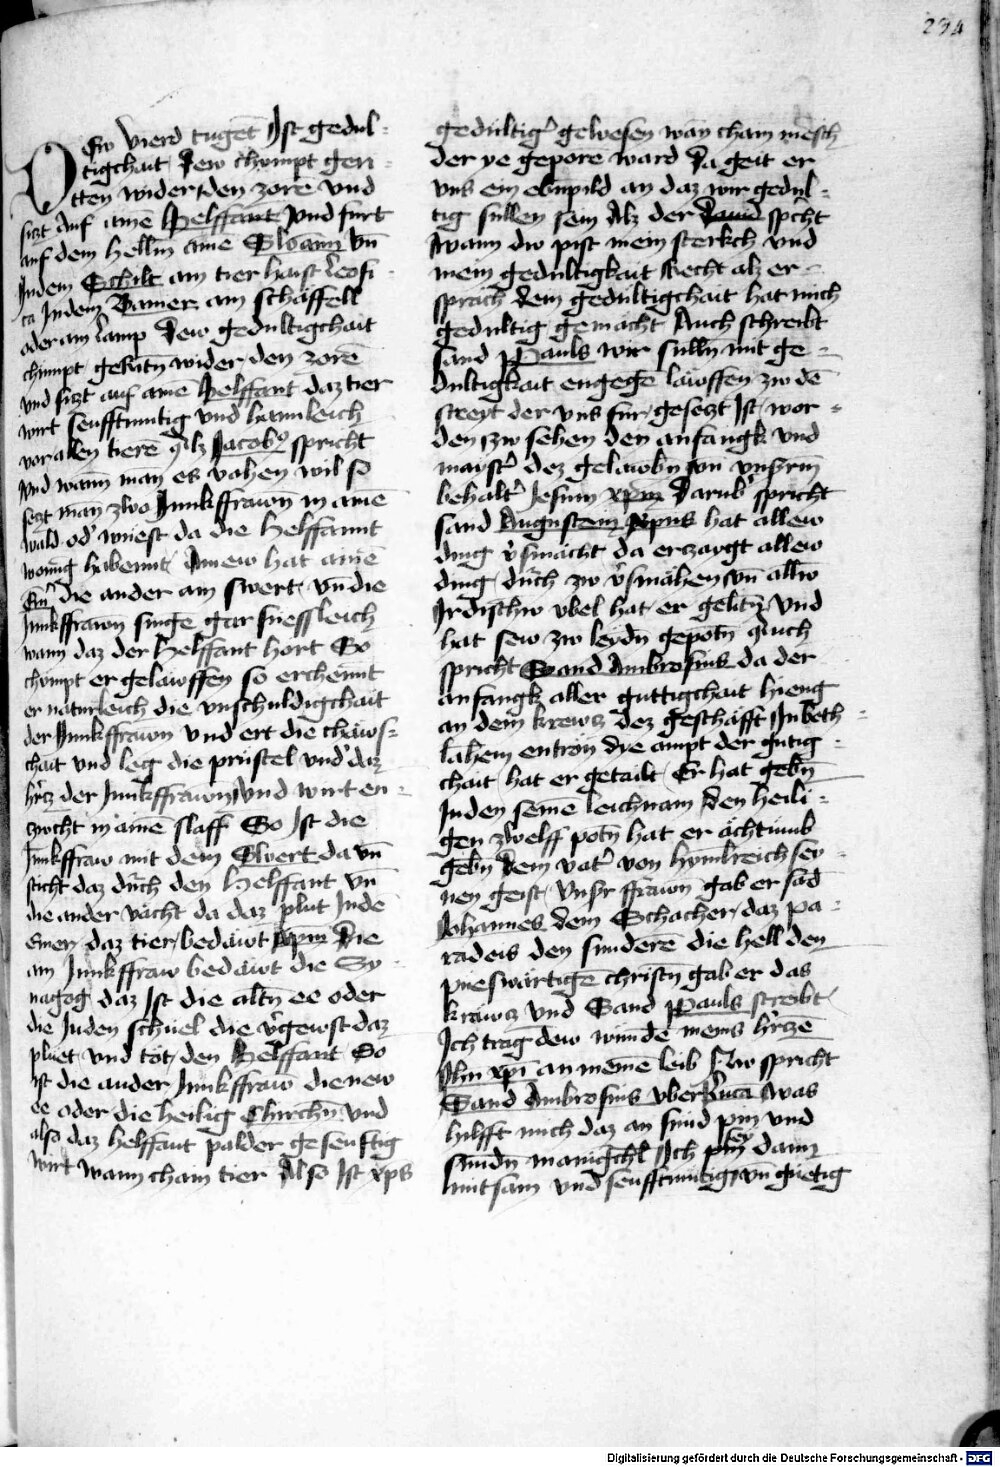 234
Dew vierd tugēt Ist gedul-
tigchait Dew chompt geri-
tten wider den zorē vnd
sitzt Auf amē Helffant Vnd fürt
auf dem hellm̄ aīne Swann vn̄
Indem Schilt am tier haist
ca Indem Banner am schäffell
oder am lamp Dew gedultigchait
chumpt geritn̄ wider den zorē
vnd sitzt auf amē Helffant daz tier
wirt senfftmutig vnd haimleich
vor allen tierē Alz Jacob9 spricht
Vnd wann man es vahen wil so
setzt man zwo Junkffrawn in amē
wald od' wüest da die Helffannt
wonūg habennt Ainew hat ainē
die ander am swert vn̄ die
Junkffrawn singē gar süessleich
wann daz der Helffant hort So
chompt er gelawffen so erchennt
er naturleich die vnschuldigchait
der Junkffrawn vnd ert die chäws-
chait vnd leg die prüstel vnd' daz
der Junkffrawn Vnd wirt en-
zwcht in amē slaff So Ist die
Junkffraw mit dem Swert da vn̄
sticht daz durch den Helffant vn̄
die ander vächt da daz plut Inde
Emer daz tier bedäwt xpm Die
am Junkffraw bedäwt die Sy-
nagog daz Ist die altn̄ ee oder
die Juden schuel die v'gewst daz
pluet vnd töt den Helffant So
ist die ander Junkffraw die new
ee oder die heilig Chirchn̄ vnd
also daz helffant palder gesenftig
wirt wann chain tier Also Ist xps
gedultig' gewesen wan chain mēsch
der ye geporē ward Da geit er
vns ein ebnpild an daz wir gedul-
tig sullen sein Alz der Dauid sp'cht
Wann dw pist mein sterkch vnd
mein gedultigkait Recht alz er
sprach Dem gedultigchait hat mich
gedultig gemacht Auch schreibt
sand Pauls wir sulln mit ge-
dultigkait engegē lawffen zw dē
streyt der vns für gesetzt Ist wor-
den zw sehen den anfangk vnd
mayst' dez gelawbn̄ vnserm̄
behalt' Jesum xpm Darub' spricht
sand Augustein xpus hat allew
ding v'smächt da erzaygt allew
ding durch zw v'smähen vn̄ allw
Irdischw vbel hat er gelitn̄ Vnd
hat sew zw leydn̄ gepotn̄ Auch
spricht Sand Ambrosius da der
anfangk aller güttigchait hieng
an dem krewcz dez geschäfft In
entron die ampt der gütig-
chait hat er getailt Er hat gebn̄
In den seinē leichnam Den heili-
gen zwelff potn̄ hat er ächtnüs
gebn̄ Dem vat' von hymlreich sey-
nen geist Vns'r ffrawn̄ gab er sād
Johannes Dem Schacher daz pa-
radeis den sunderē die hell den
pueswärtigē christn̄ gab er das
kräwcz vnd Sand Pauls streibt
Ich trag dew wundē meins h'rczē
Jhu xpi an meinē leib Nw spricht
Sand Ambrosius vber Lucā Was
hilfft mich daz an sünd pin vnd
sündn̄ manigchl Ich pin dann
miltsam vnd senfftmutig vn̄ guetig
Digitalisierung gefördert durch die Deutsche Forschungsgemeinschaft - DFG